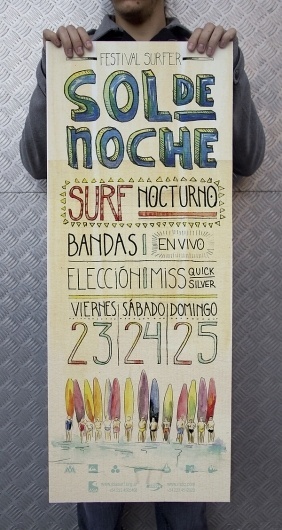 FESTIVAL SURFER
SOL DE
NOCHE
SURF NOCTURNO
BANDAS EN VIVO
ELECCIÓN MISS QUICK SILVER
VIERNES SÁBADO DOMINGO
23 24 25